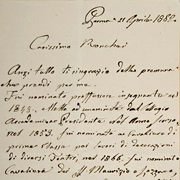 Roma - 21 Aprile 1882.
Carissimo Bianchi
Anzi tutto ti ringrazio della premura
che prendi per me.
Fui nominato professore insegnante nel
1848. - Eletto ad unanimità dal Collegio
Accademico Presidente nel Anno scorso,
nel 1853. fui nominato a Cavaliere di
prima Classe per lavori di decorazioni
di diversi nel 1866, fui nominato
Cavaliere dei SS Maurizio e Lazzaro,